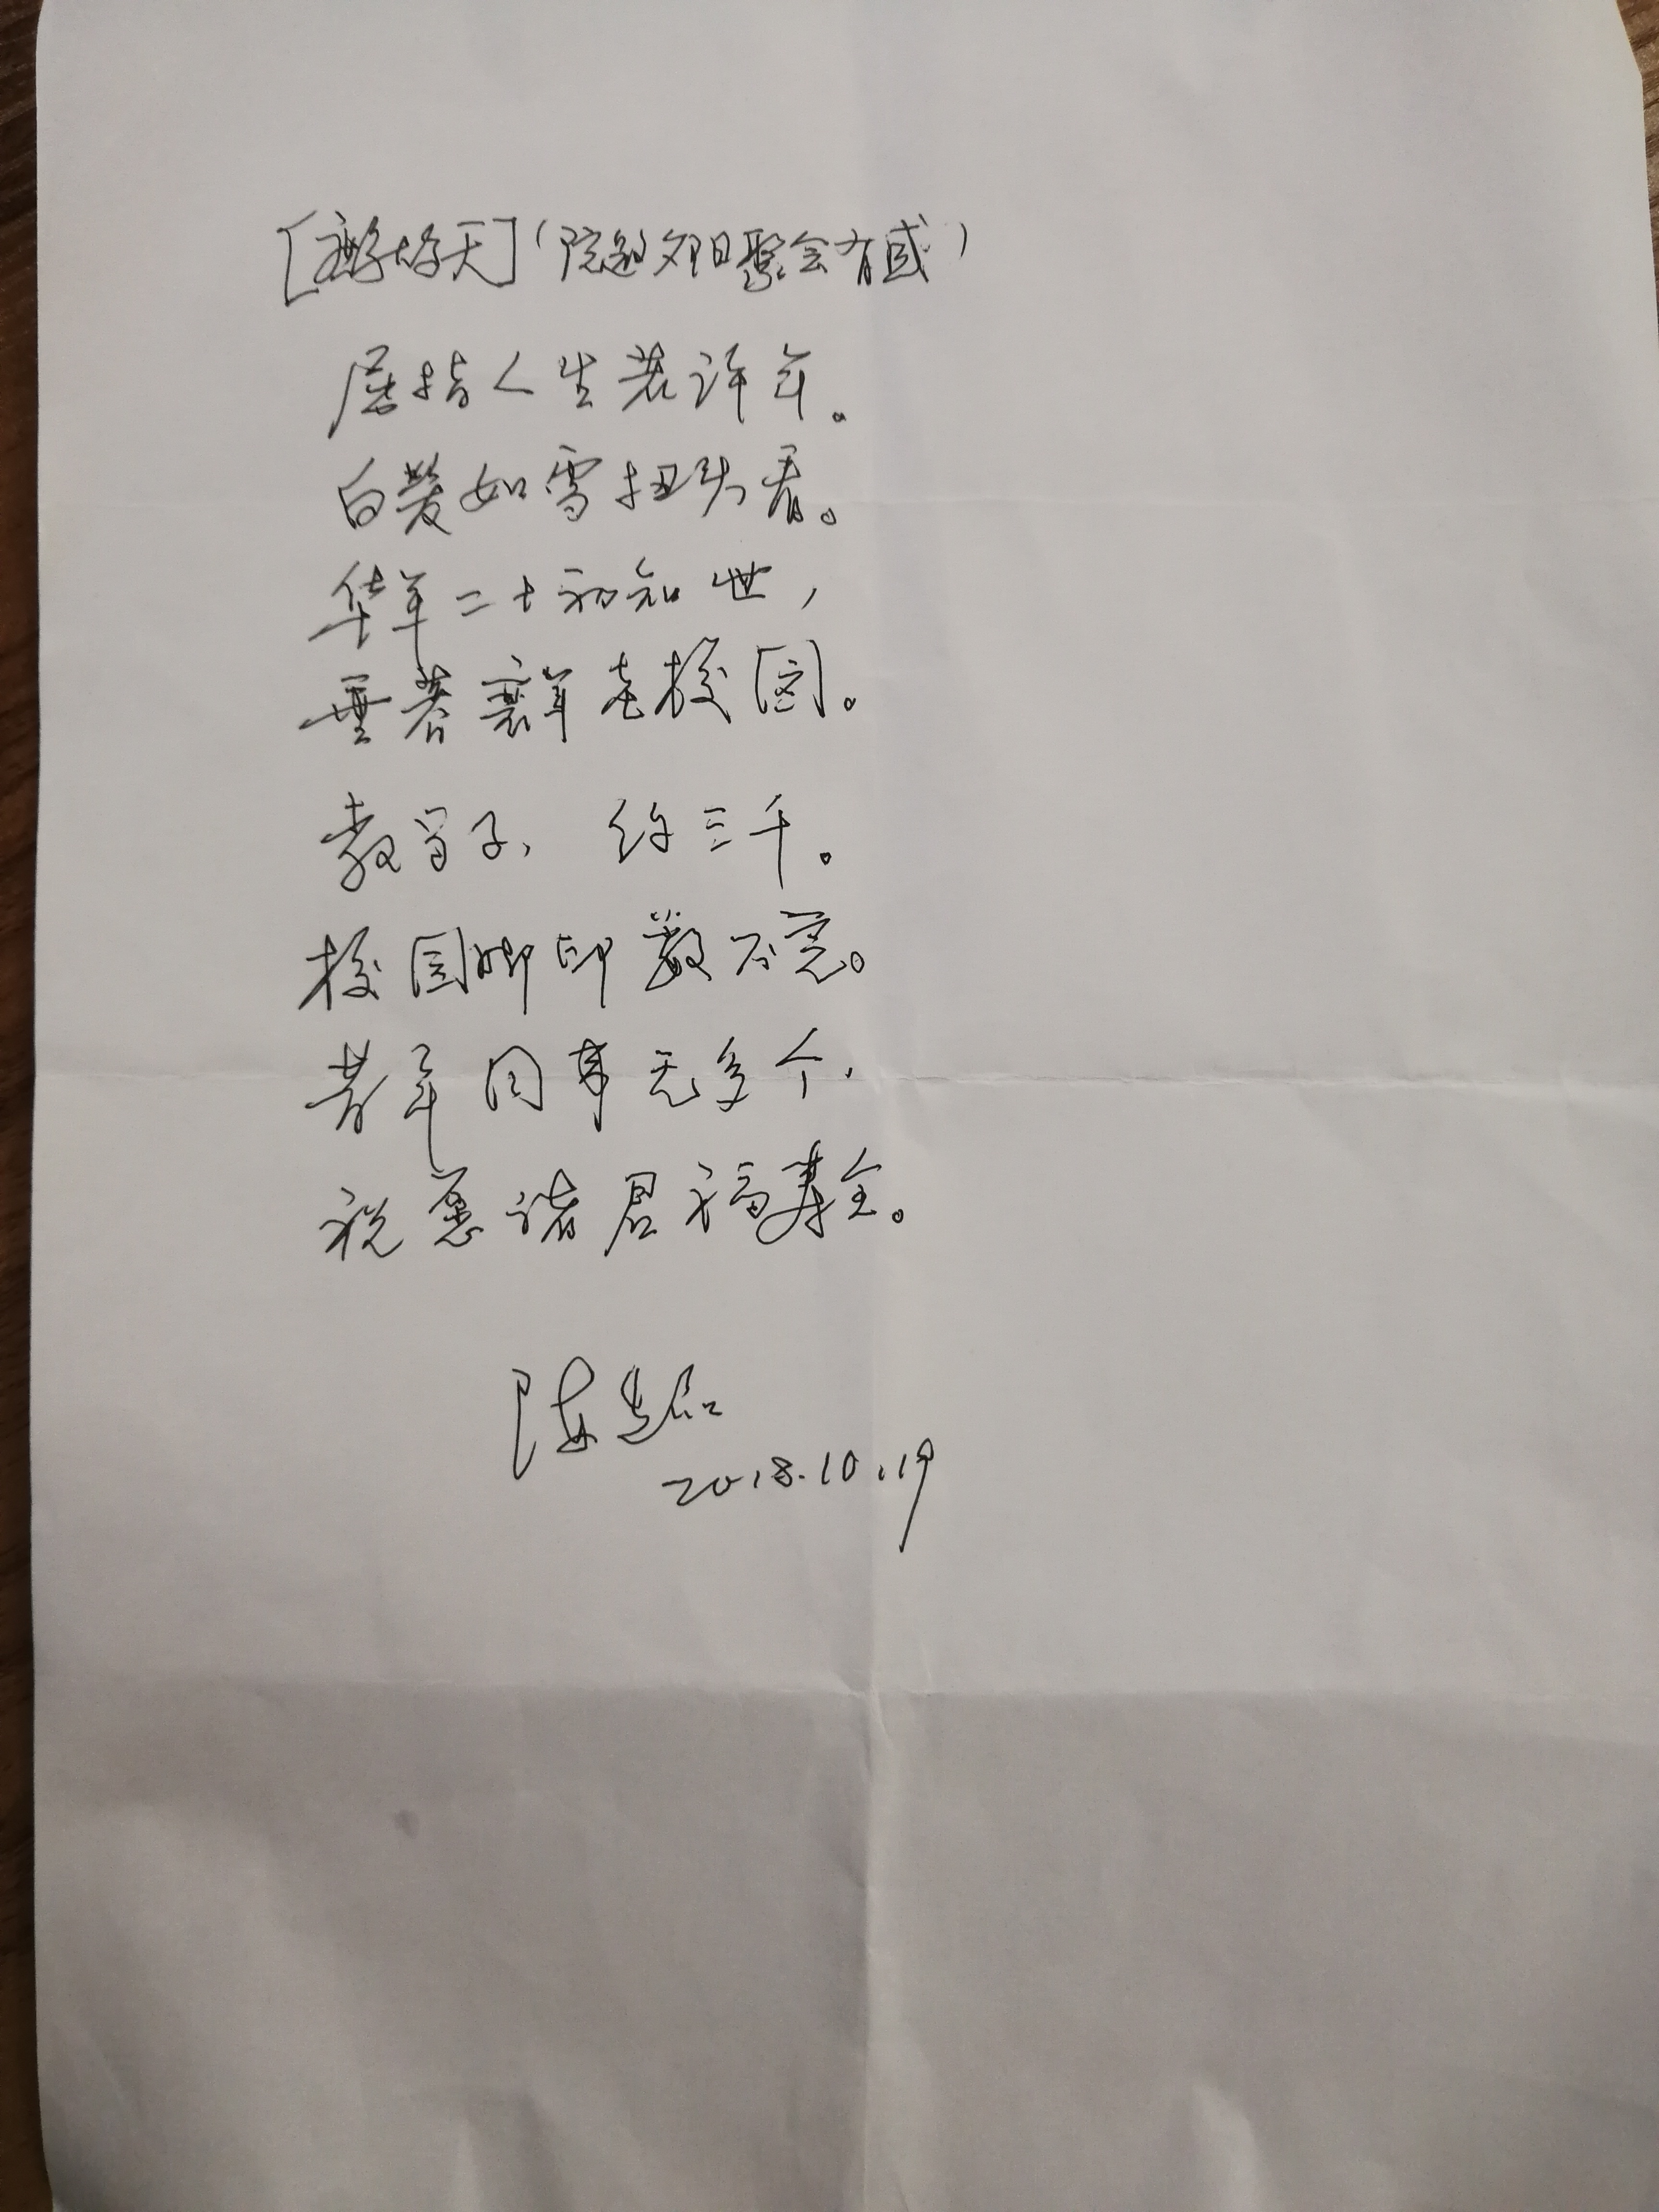 [鹧鸪天](院逢夕日聚会有感)
屈指人生若许年。
白发如雪扭头看。
华年二十初知世,
垂暮衰年老校园。
教学子,约三千。
校园脚印数不完。
昔年同事无多个,
祝愿诸君福寿全。
陈
2018.10.19